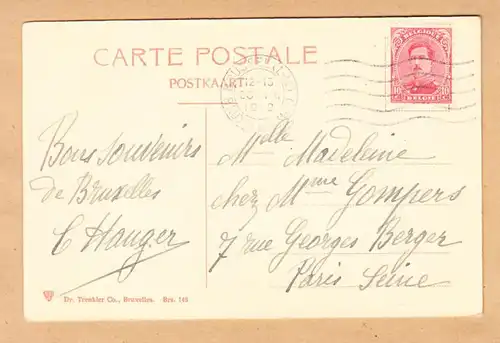 CARTE POSTALE
POSTKAART
BELGIQUE
10 10
BELGIE
12-15
Bons souvenirs
de Bruxelles
C Hanger
Melle Madeleine
chez Mme Gompers
7 rue Georges Berger
Paris Seine
Dr. Trenkler Co., Bruxelles. Brs. 148